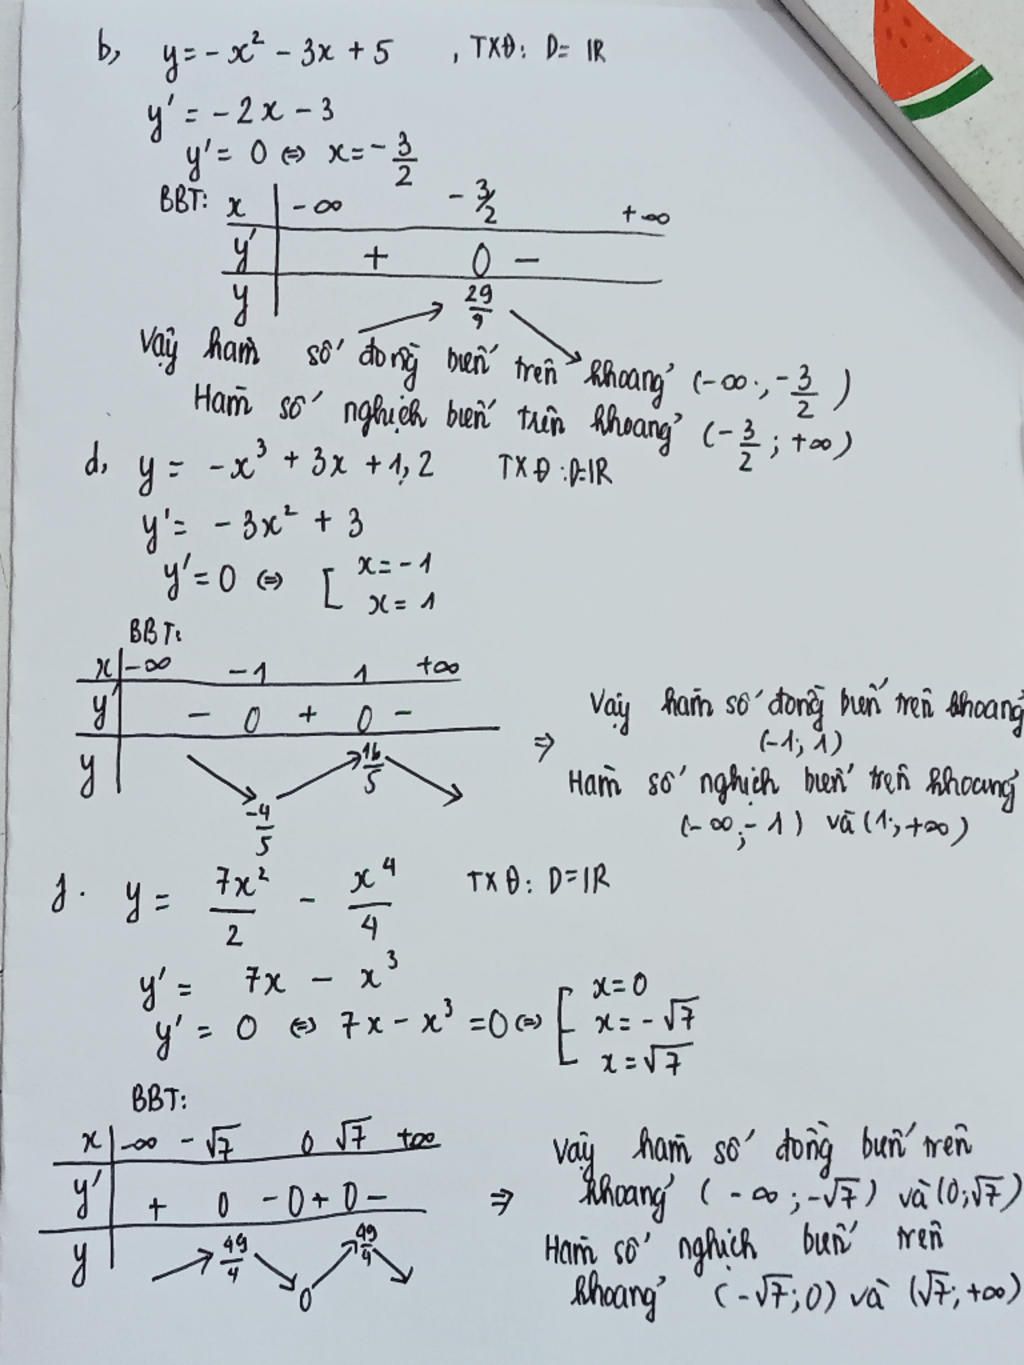 b, y = - x² - 3x + 5 , TXĐ: D = IR
y' = - 2x - 3
y' = 0 ⇔ x = - 3/2
BBT: x -∞ - 3/2 +∞
y' + 0 -
y 29/9
Vậy hàm số đồng biến trên khoảng (-∞; - 3/2)
Hàm số nghịch biến trên khoảng (- 3/2; +∞)
d, y = - x³ + 3x + 1,2 TXĐ: D = IR
y' = - 3x² + 3
y' = 0 ⇔ [ x = -1
x = 1
BBT:
x -∞ -1 1 +∞
y' - 0 + 0 -
y -4/5 16/5
⇒ Vậy hàm số đồng biến trên khoảng
(-1; 1)
Hàm số nghịch biến trên khoảng
(-∞; -1) và (1; +∞)
f. y = 7x²/2 - x⁴/4 TXĐ: D = IR
y' = 7x - x³
y' = 0 ⇔ 7x - x³ = 0 ⇔ [ x = 0
x = -√7
x = √7
BBT:
x -∞ -√7 0 √7 +∞
y' + 0 - 0 + 0 -
y 49/4 0 49/4
⇒ Vậy hàm số đồng biến trên
khoảng (-∞; -√7) và (0; √7)
Hàm số nghịch biến trên
khoảng (-√7; 0) và (√7; +∞)